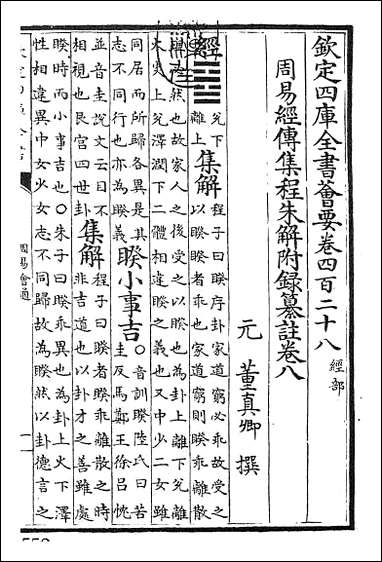 欽定四庫全書薈要卷四百二十八 經部
周易經傳集程朱解附録纂註卷八
元 董真卿 撰
經 ䷥ 兌下離上 集解 程子曰睽序卦家道窮必乖故受之以睽睽者乖也家道窮則睽乖離散
然也故家人之後受之以睽也為卦上離下兌離火炎上兌澤潤下二體相違睽之義也又中少二女雖
同居而所歸各異是其志不同行也亦為睽義 睽小事吉 ○音訓睽陸氏曰苦圭反馬鄭王徐呂忱
並音圭說文云目不相視也艮宫四世卦 集解 程子曰睽者睽乖離散之時非吉道也以卦才之善雖處
睽時而小事吉也○朱子曰睽乖異也為卦上火下澤性相違異中女少女志不同歸故為睽然以卦德言之
周易會通
一